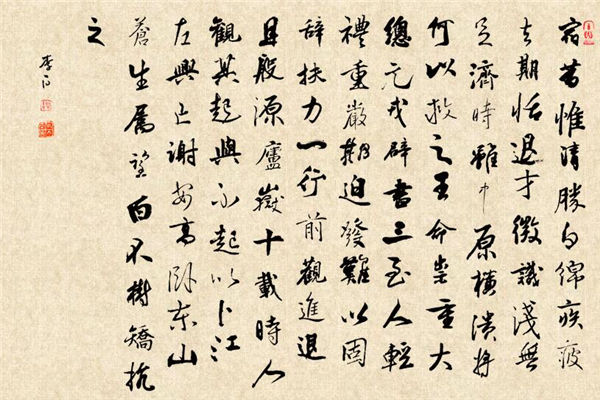 宿昔惟清勝白綿疾疲
去期恬退才微識淺無
足濟時雖中原橫潰將
何以救之王命崇重大
總元戎辟書三至人輕
禮重嚴期迫發難以固
辭扶力一行前觀進退
且殷源廬嶽十載時人
觀其起與不起以卜江
左興亡謝安高臥東山
蒼生屬望白不樹矯抗
之
李